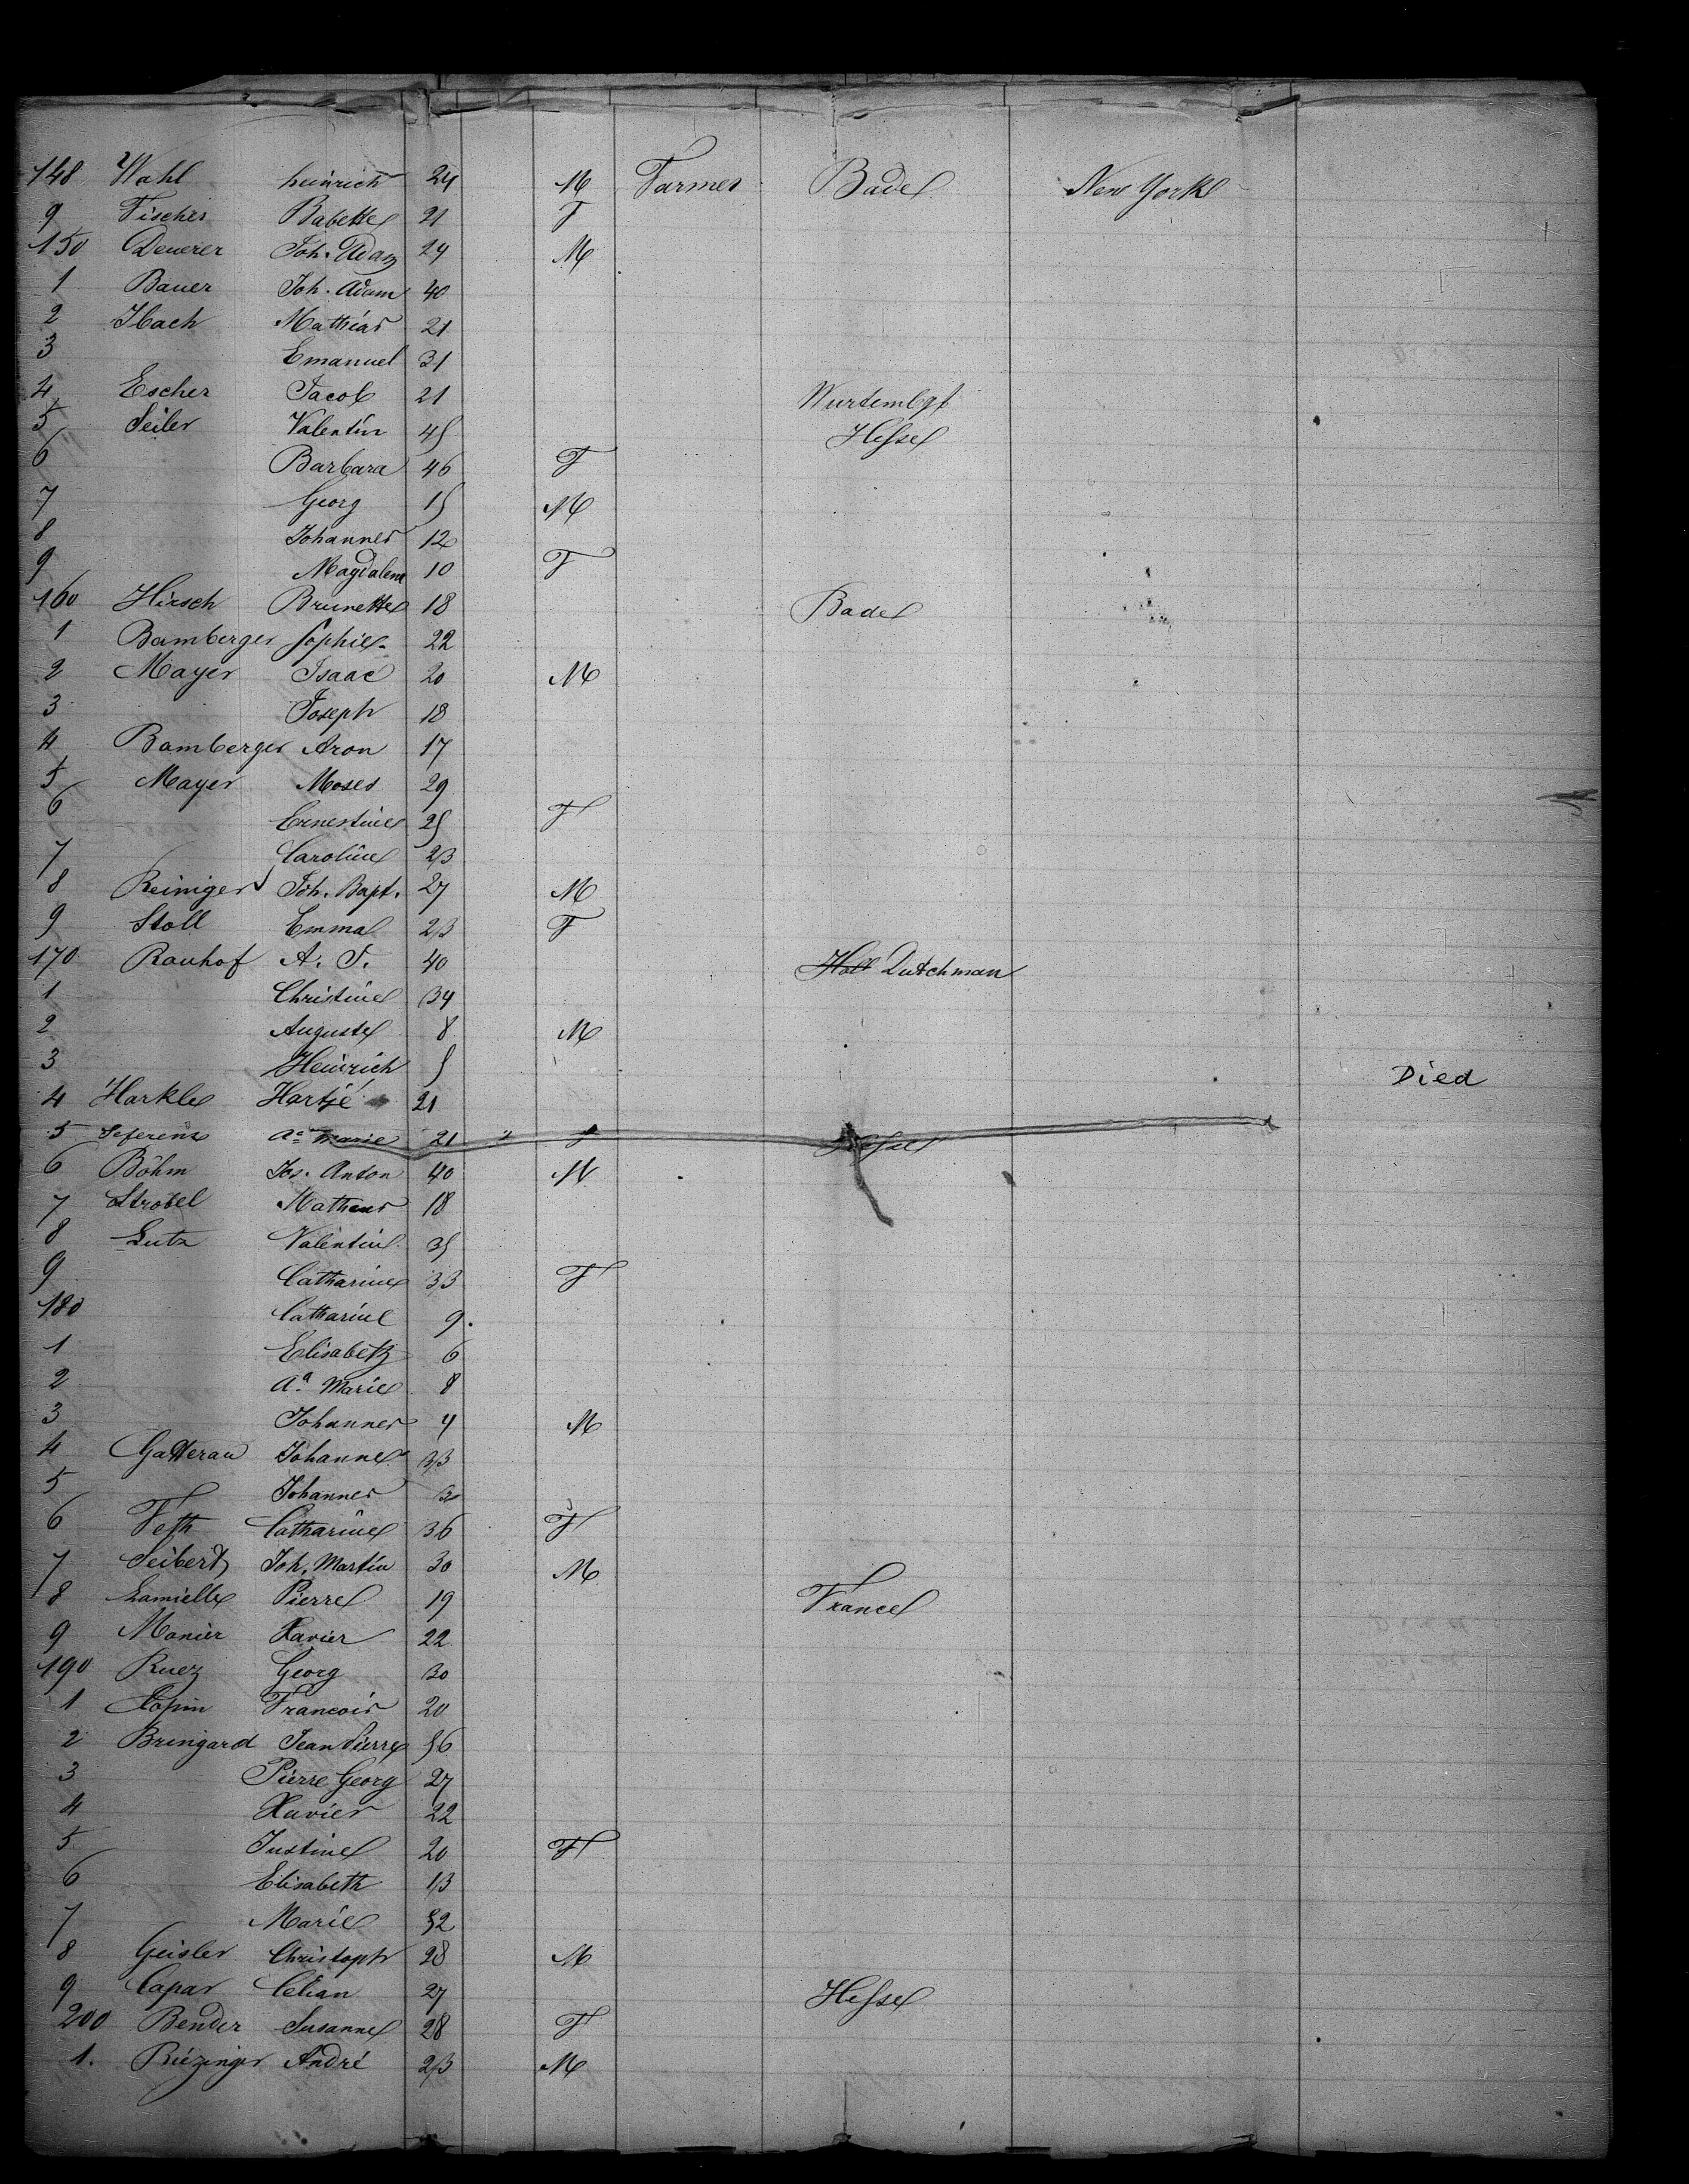 148 Wahl heinrich 24 M Farmer Bade New York
9 Fischer Babette 21 F
150 Deuerer Joh. Adam 24 M
1 Bauer Joh. Adam 40
2 Ibach Mathias 21
3 Emanuel 31
4 Escher Jacob 21 Wurtembgt
5 Seiler Valentin 45 Hesse
6 Barbara 46 F
7 Georg 15 M
8 Johannes 12
9 Magdalena 10 F
160 Hirsch Brunette 18 Bade
1 Bamberger Sophie 22
2 Mayer Isaac 20 M
3 Joseph 18
4 Bamberger Aron 17
5 Mayer Moses 29
6 Ernestine 25 F
7 Caroline 23
8 Reiniger Joh. Bapt. 27 M
9 Stoll Emma 23 F
170 Rauhof A. T. 40 Holl Dutchman
1 Christine 34
2 Auguste 8 M
3 Heinrich 5 Died
4 Harkle Hartjé 21
5 Aa Marie 21 " F Hesse
6 Böhm Jos. Anton 40 M
7 Strobel Matheus 18
8 Lutz Valentin 35
9 Catharine 33 F
180 Catharine 9.
1 Elisabeth 6
2 Aa Marie 8
3 Johannes 4 M
4 Gatterau Johannes 33
5 Johannes
6 Feth Catharine 36 F
7 Seibert Joh. Martin 30 M
8 Lamielle Pierre 19 France
9 Monier Xavier 22
190 Ruez Georg 30
1 Francois 20
2 Bringard Jean Pierre 56
3 Pierre Georg 27
4 Xavier 22
5 Justine 20 F
6 Elisabeth 13
7 Marie 52
8 Geisler Christoph 28 M
9 Capar 27 Hesse
200 Bender Susanne 28 F
1. Biézinger André 23 M